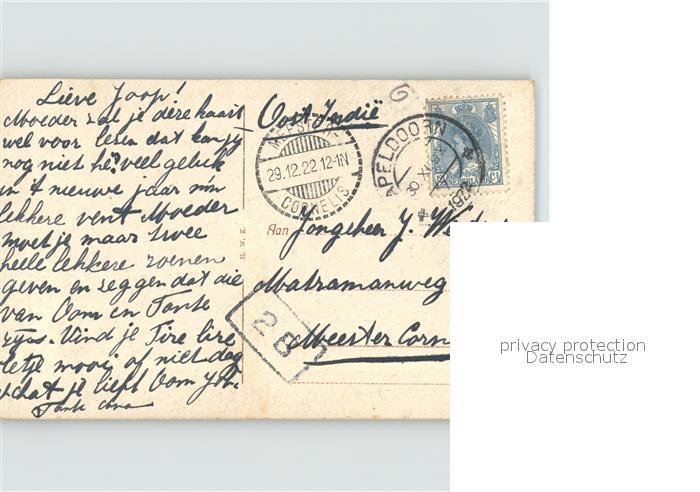 Lieve Joop!
Moeder zal je deze kaart
wel voor lezen dat kan jij
nog niet hè? veel geluk
in 't nieuwe jaar m'n
lekkere vent Moeder
moet je maar twee
heele lekkere zoenen
geven en zeggen dat die
van Oom en Tante
zijn. Vind je Tire lire
letje mooi of niet dag
schat je liefh Oom Joh.
Tante
Oost Indië
MEESTER
29.12.22.12-1N
CORNELIS
APELDOORN
1922
NEDERLAND
H. W. K.
Aan
Jongeheer J.
Matramanweg
Meester Corn
2 B
privacy protection
Datenschutz